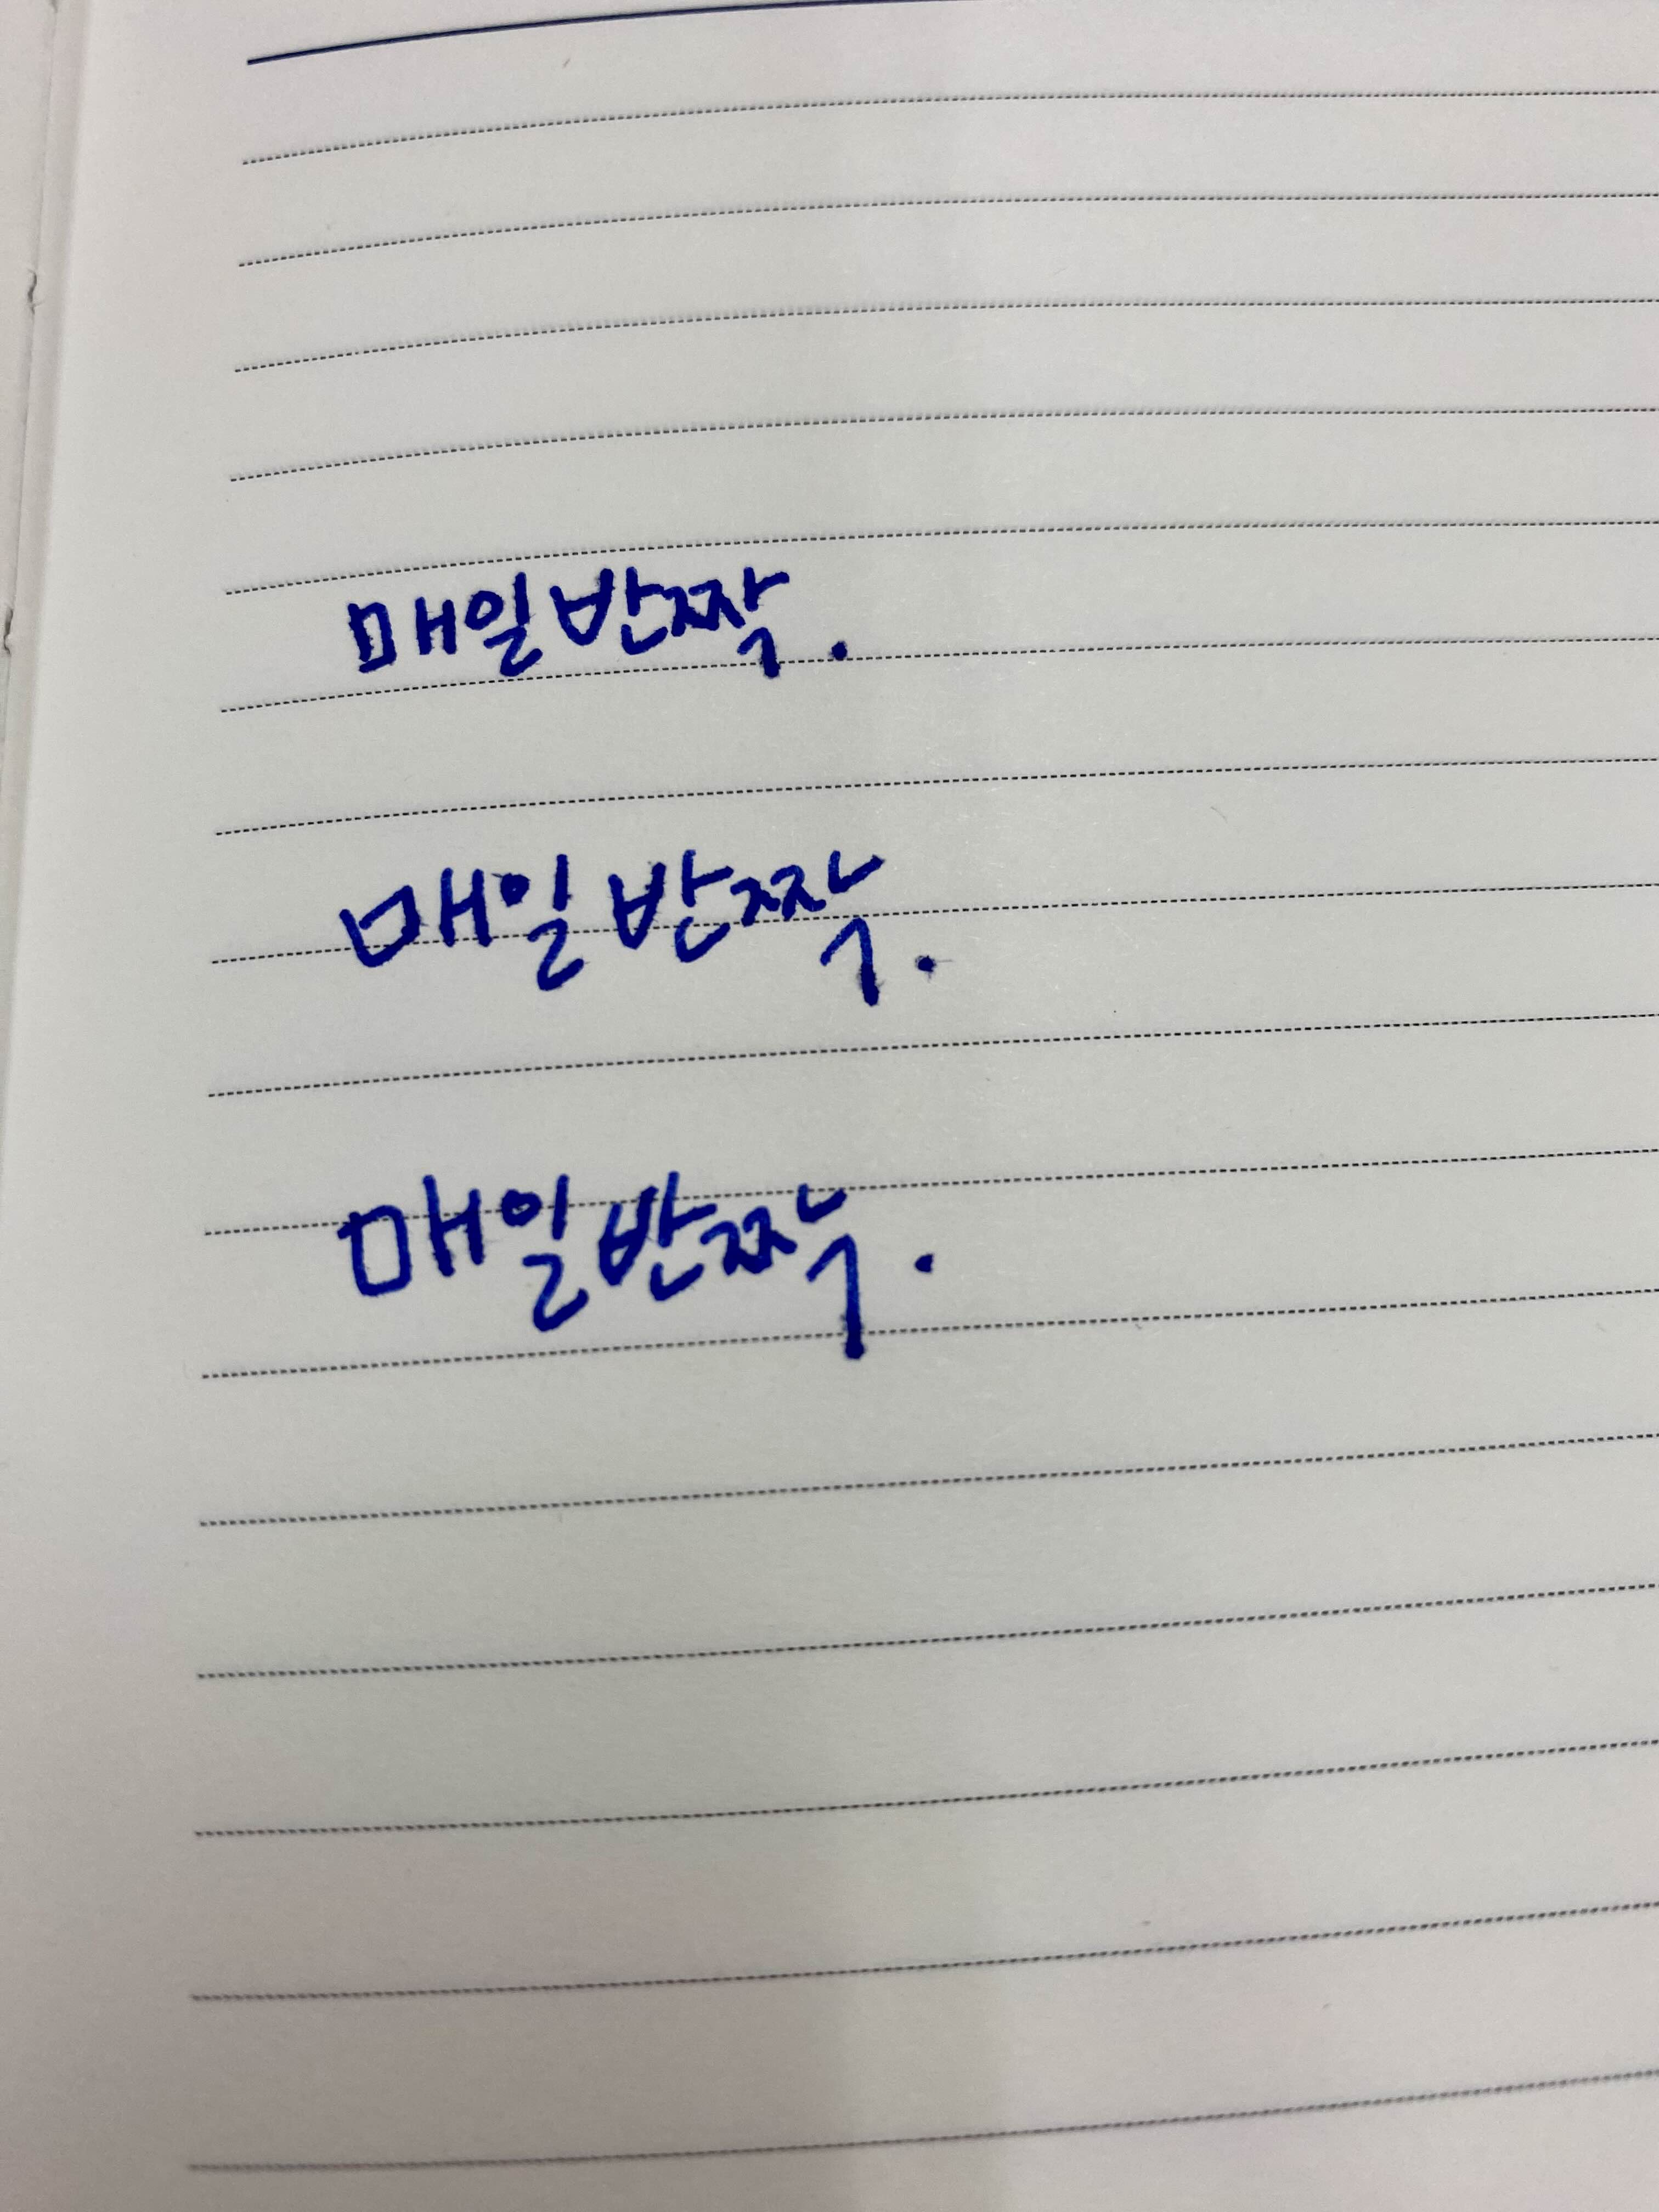 매일 반짝.
매일 반짝.
매일 반짝.